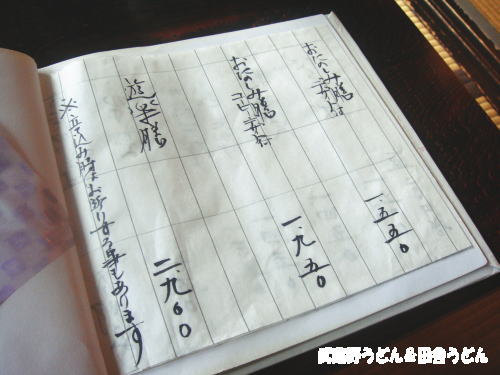 おたのしみ膳 弁付
一、五五〇
おたのしみ膳 コーヒー弁付
一、九五〇
遊楽膳
二、九〇〇
※立て込み時はお断りする事もあります
武蔵野うどん＆田舎うどん